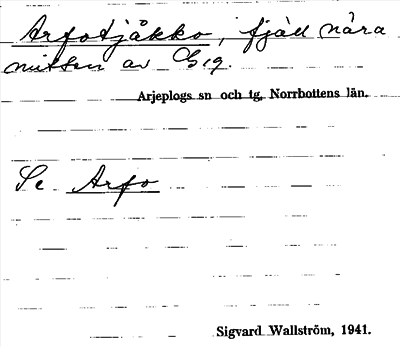 Arfotjåkko, fjäll nära
mitten av Gig.
Arjeplogs sn och tg, Norrbottens län.
Se Arfo
Sigvard Wallström, 1941.